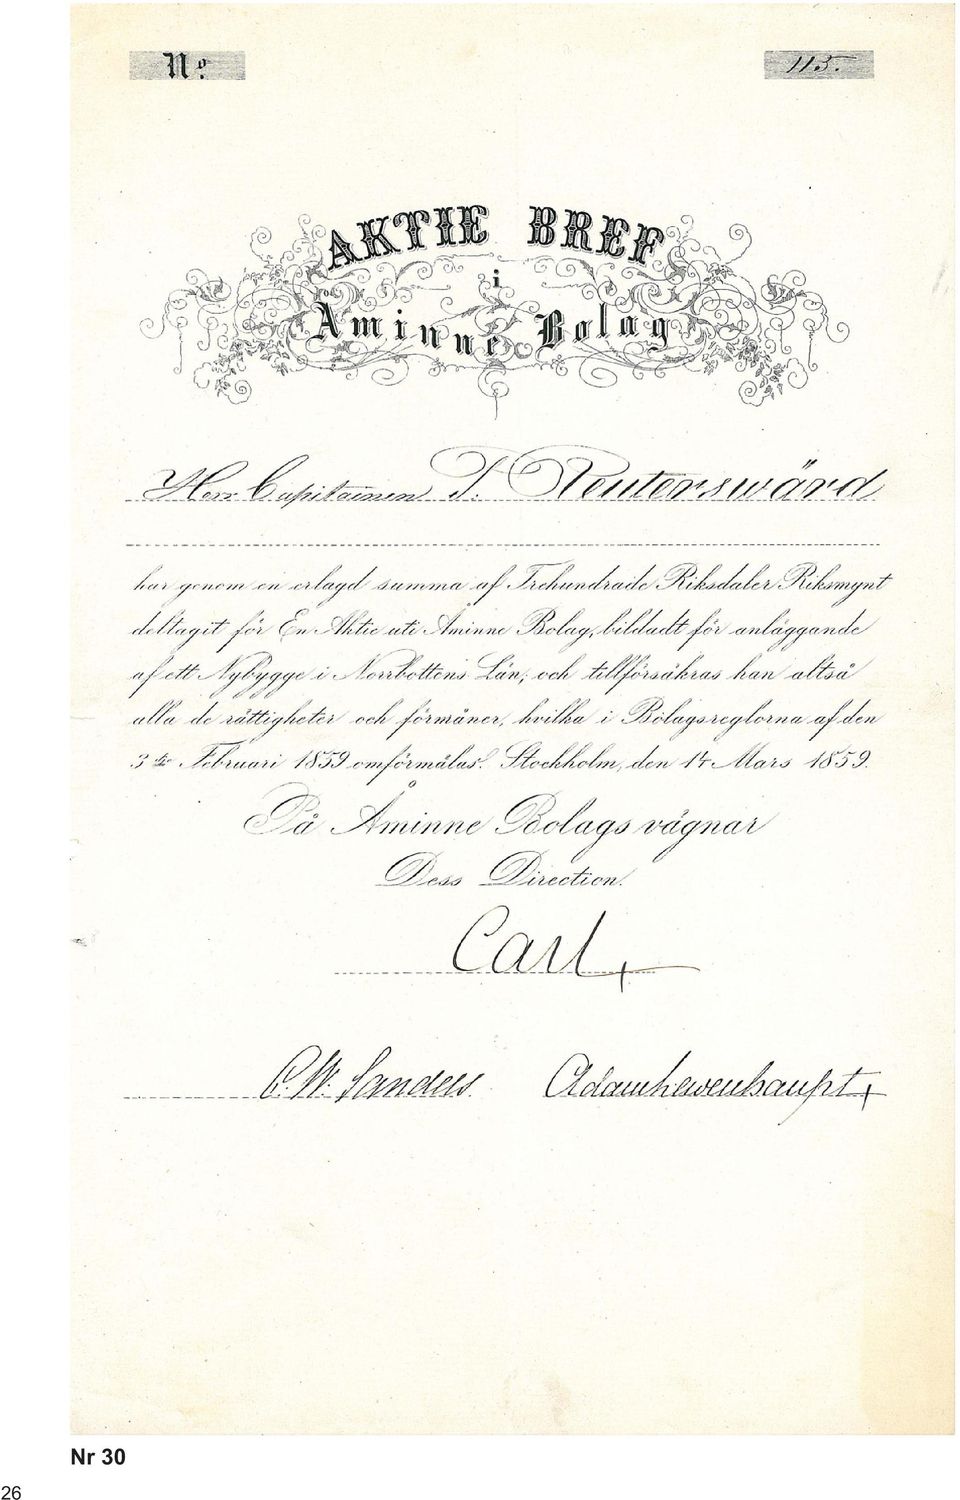 No 115.
AKTIE BREF
i
Åminne Bolag
Herr Capitainen J. Reuterswärd
har genom en erlagd summa af Trehundrade Riksdaler Riksmynt
deltagit för En Aktie uti Åminne Bolag, bildadt för anläggande
af ett Nybygge i Norrbottens Län; och tillförsäkras han altså
alla de rättigheter och förmåner, hvilka i Bolagsreglorna af den
3dje Februari 1859 omförmälas. Stockholm, den 14 Mars 1859.
På Åminne Bolags vägnar
Dess Direction.
Carl
C. W. Sandels Adam Lewenhaupt
Nr 30
26